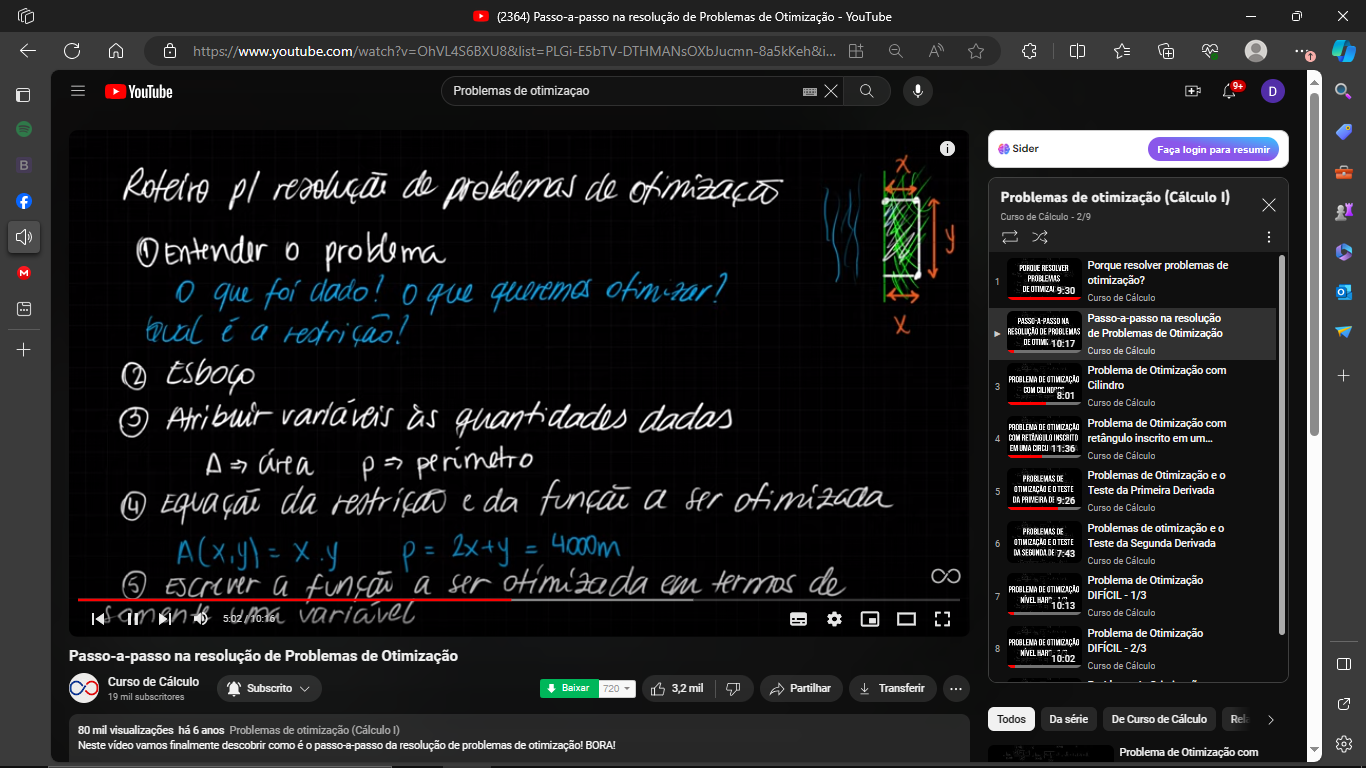 (2364) Passo-a-passo na resolução de Problemas de Otimização - YouTube
https://www.youtube.com/watch?v=OhVL4S6BXU8&list=PLGi-E5bTV-DTHMANsOXbJucmn-8a5kKeh&i...
YouTube
Problemas de otimizaçao
9+
D
Roteiro p/ resolução de problemas de otimização
① Entender o problema
O que foi dado? O que queremos otimizar?
Qual é a restrição?
② Esboço
③ Atribuir variáveis às quantidades dadas
A => área p => perímetro
④ Equação da restrição e da função a ser otimizada
A(x,y) = x.y p = 2x+y = 4000m
⑤ Escrever a função a ser otimizada em termos de
somente uma variável
x
y
x
5:02 / 10:16
Passo-a-passo na resolução de Problemas de Otimização
Curso de Cálculo
19 mil subscritores
Subscrito
Baixar
720
3,2 mil
Partilhar
Transferir
80 mil visualizações há 6 anos Problemas de otimização (Cálculo I)
Neste vídeo vamos finalmente descobrir como é o passo-a-passo da resolução de problemas de otimização! BORA!
Sider
Faça login para resumir
Problemas de otimização (Cálculo I)
Curso de Cálculo - 2/9
1
PORQUE RESOLVER
PROBLEMAS
DE OTIMIZA
9:30
Porque resolver problemas de
otimização?
Curso de Cálculo
PASSO-A-PASSO NA
RESOLUÇÃO DE PROBLEMAS
DE OTIMI
10:17
Passo-a-passo na resolução
de Problemas de Otimização
Curso de Cálculo
3
PROBLEMA DE OTIMIZAÇÃO
COM CILIND
8:01
Problema de Otimização com
Cilindro
Curso de Cálculo
4
PROBLEMA DE OTIMIZAÇÃO
COM RETÂNGULO INSCRITO
EM UMA CIRCU
11:36
Problema de Otimização com
retângulo inscrito em um...
Curso de Cálculo
5
PROBLEMAS DE
OTIMIZAÇÃO E O TESTE
DA PRIMEIRA DE
9:26
Problemas de Otimização e o
Teste da Primeira Derivada
Curso de Cálculo
6
PROBLEMAS DE
OTIMIZAÇÃO E O TESTE
DA SEGUNDA DE
7:43
Problemas de otimização e o
Teste da Segunda Derivada
Curso de Cálculo
7
PROBLEMA DE OTIMIZAÇÃO
NÍVEL HAR
10:13
Problema de Otimização
DIFÍCIL - 1/3
Curso de Cálculo
8
PROBLEMA DE OTIMIZAÇÃO
NÍVEL HAR
10:02
Problema de Otimização
DIFÍCIL - 2/3
Curso de Cálculo
Todos
Da série
De Curso de Cálculo
Rela
Problema de Otimização com